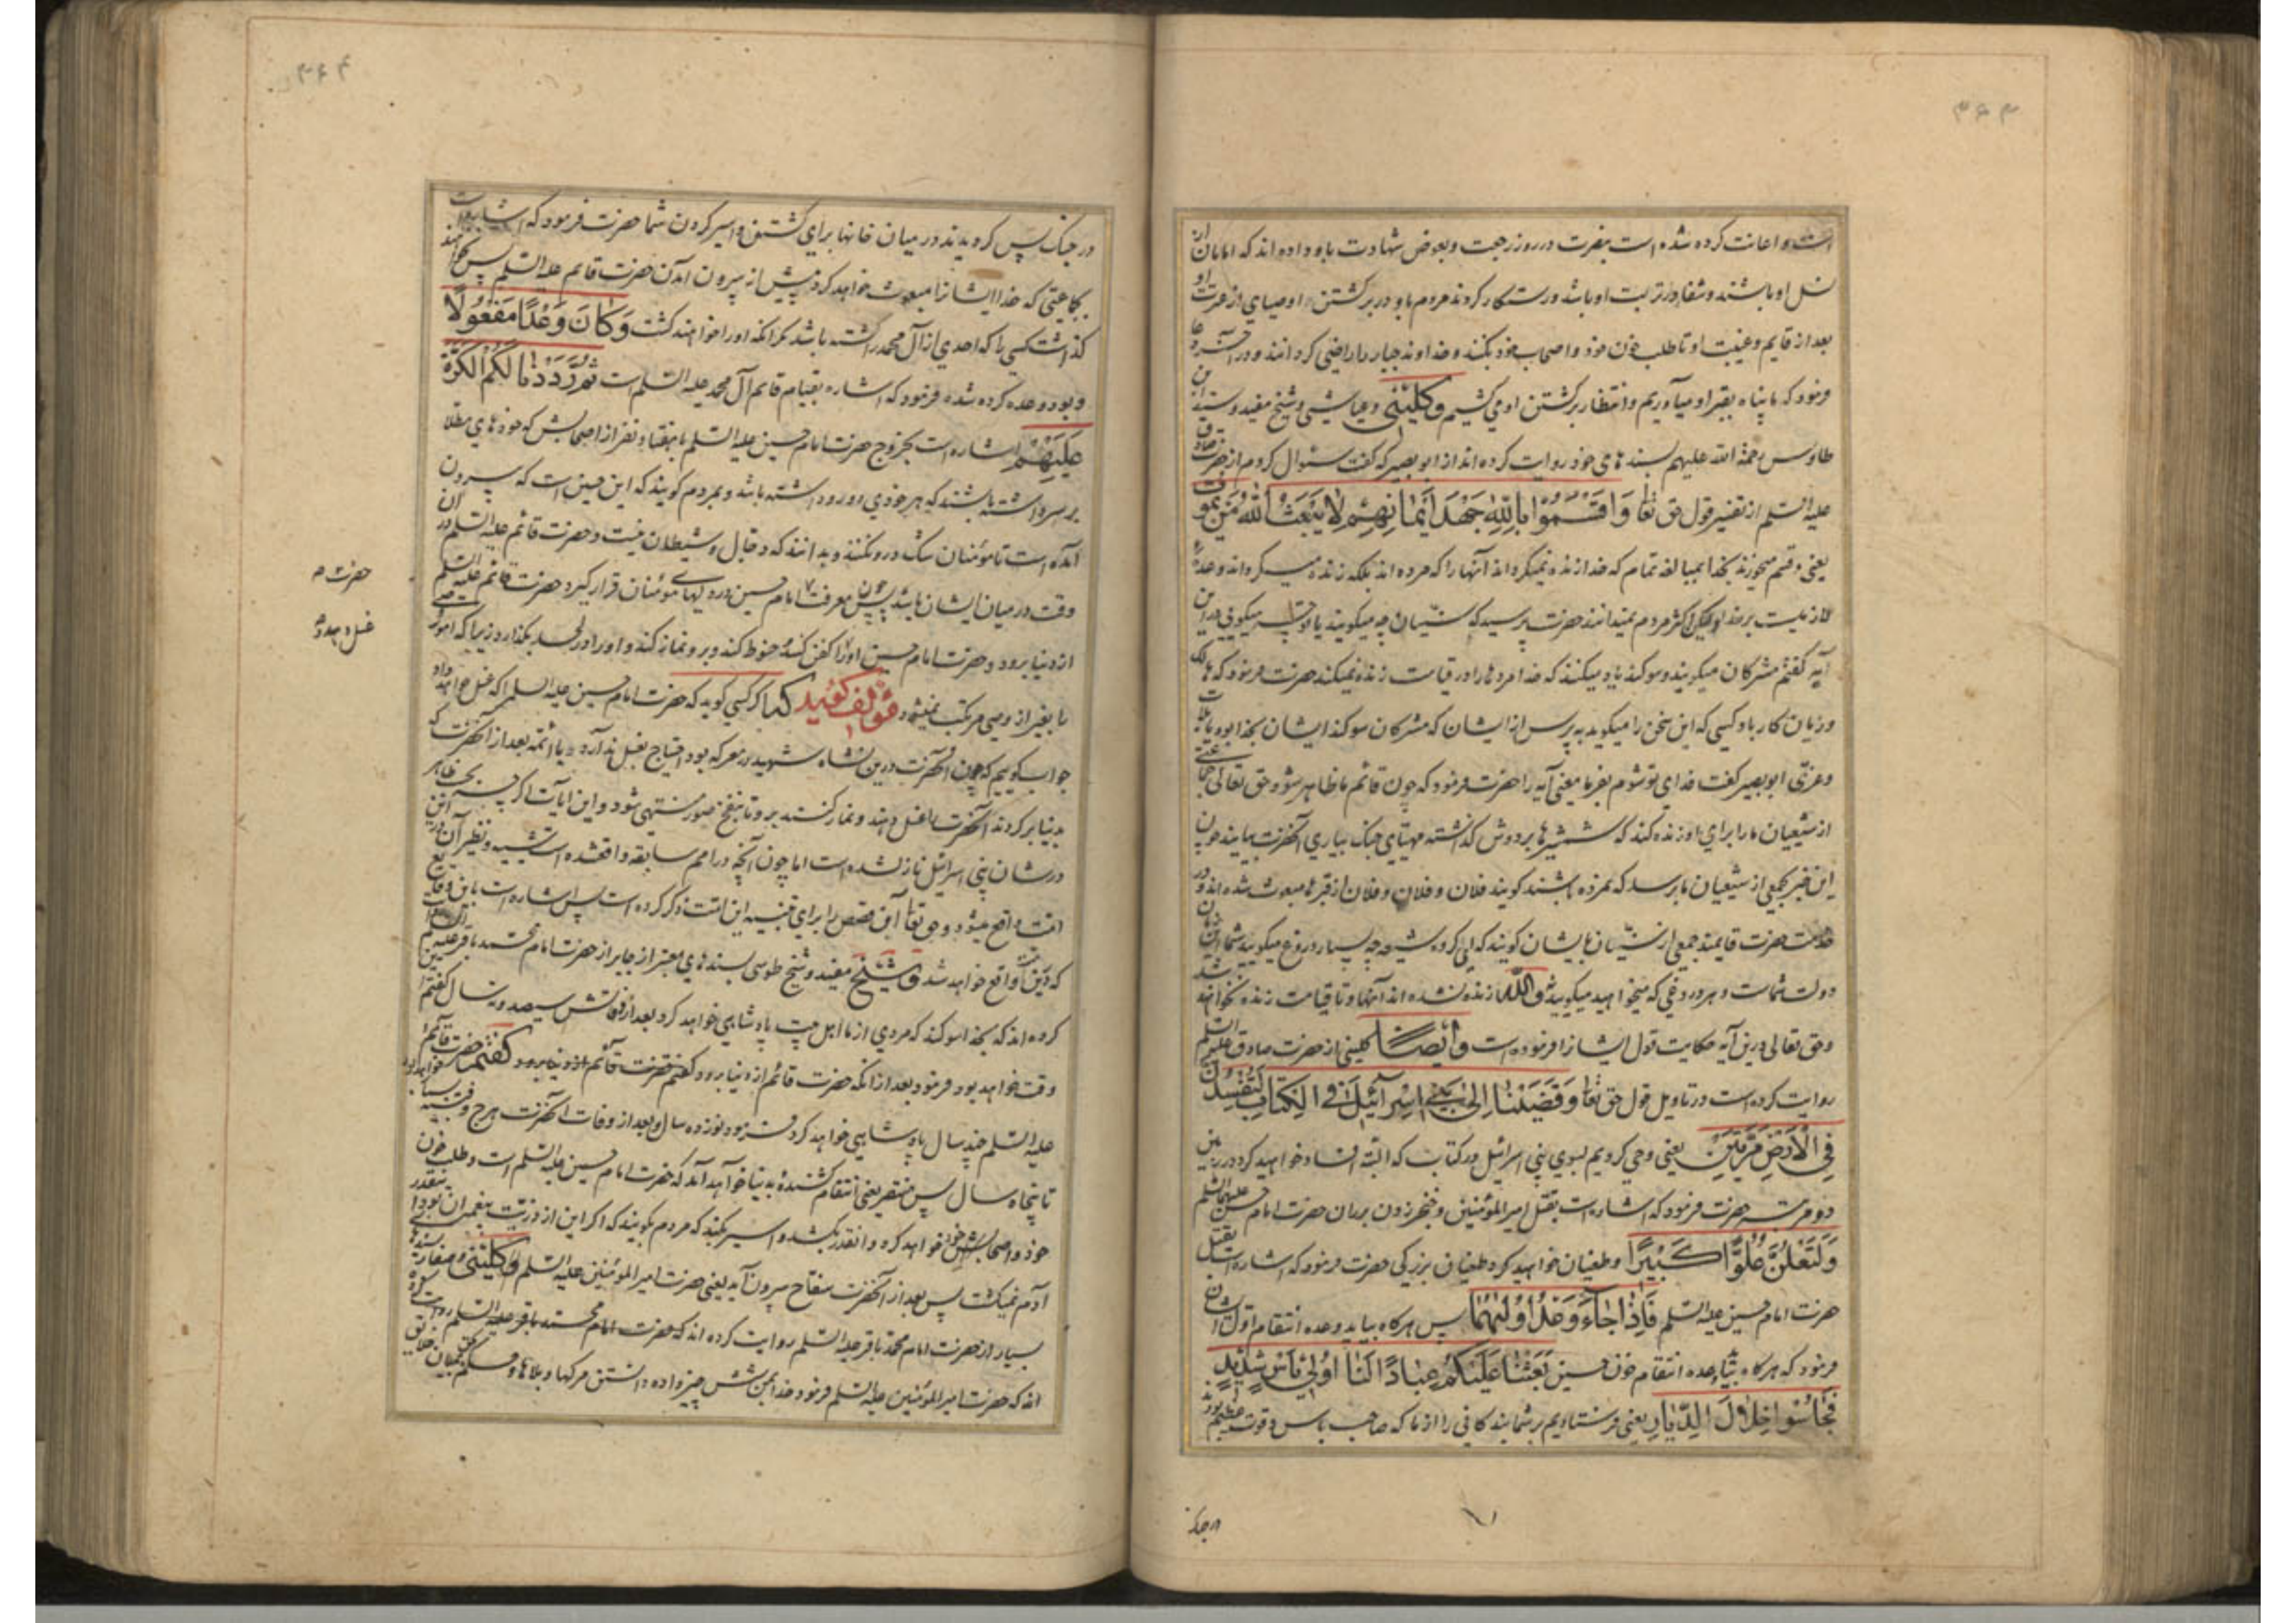 ۳۶۳
است و اعانت کرده شده است بنصرت در روز رجعت و بعوض شهادت باو داده اند که امامان از
نسل او باشند و شفا در تربت او باشد و رستگار کردند مردم باو در برگشتن او و اوصیای از عترت او
بعد از قایم و غیبت او تا طلب خون خود و اصحاب خود بکنند و خداوند جبار را راضی گردانند و در آخر دعا
فرمود که ما پناه بقبر او میآوریم و انتظار برگشتن او می کشیم و کلینی و عیاشی و شیخ مفید و سید ابن
طاوس رحمة الله علیهم بسندهای خود روایت کرده اند از ابو بصیر که گفت سئوال کردم از حضرت صادق
علیه السلم از تفسیر قول حق تعا وَاَقْسَمُوا بِاللّٰهِ جَهْدَ اَیْمَانِهِمْ لَا یَبْعَثُ اللّٰهُ مَنْ یَمُوت
یعنی و قسم میخورند بخدا بمبالغه تمام که خدا زنده نمیگرداند آنها را که مرده اند بلکه زنده میگرداند وعدهٔ
لازمیست بر خدا ولیکن اکثر مردم نمیدانند حضرت پرسید که سنیان چه میگویند یا تو چه میگویی در این
آیه گفتم مشرکان میگویند و سوگند یاد میکنند که خدا مرده ها را در قیامت زنده نمیکند حضرت فرمود که هلاک
و زیان کار باد کسی که این سخن را میگوید بپرس از ایشان که مشرکان سوگند ایشان بخدا بود یا بلات
و عزّی ابو بصیر گفت فدای تو شوم بفرما معنی آیه را حضرت فرمود که چون قائم ما ظاهر شود حق تعالی جماعتی
از شیعیان ما را برای او زنده کند که شمشیرها بر دوش گذاشته مهیّای جنک بیاری آنحضرت بیایند چون
این خبر بجمعی از شیعیان ما برسد که نمرده باشند گویند فلان و فلان و فلان از قبرها مبعوث شده اند و در
خدمت حضرت قایمند جمعی از سنیان بایشان گویند که ای گروه شیعه چه بسیار دروغ میگویید شما این زمان
دولت شماست و هر دروغی که میخواهید میگویید و اللّٰه زنده نشده اند آنها و تا قیامت زنده نخواهند شد
و حق تعالی درین آیه حکایت قول ایشانرا فرموده است و ایضاً کلینی از حضرت صادق علیه السلم
روایت کرده است در تاویل قول حق تعا وَقَضَیْنَا اِلٰی بَنِی اِسْرَآئِیلَ فِی الْکِتَابِ لَتُفْسِدُنَّ
فِی الْاَرْضِ مَرَّتَیْنِ یعنی وحی کردیم بسوی بنی اسرائیل در کتاب که البته افساد خواهید کرد در زمین
دو مرتبه حضرت فرمود که اشاره است بقتل امیرالمؤمنین و خنجر زدن بران حضرت امام حسن علیهما السلم
وَلَتَعْلُنَّ عُلُوًّا کَبِیْرًا و طغیان خواهید کرد طغیان بزرگی حضرت فرمود که اشاره است بقتل
حضرت امام حسین علیه السلم فَاِذَا جَآءَ وَعْدُ اُوْلٰیهُمَا پس هرگاه بیاید وعده انتقام اوّل ایشان
فرمود که هرگاه بیاید وعده انتقام خون حسین بَعَثْنَا عَلَیْکُمْ عِبَادًا لَنَا اُولِی بَأْسٍ شَدِیْدٍ
فَجَاسُوا خِلَالَ الدِّیَارِ یعنی فرستادیم بر شما بندکانی را از ما که صاحب باس و قوت عظیم بودند
در جنک
۳۶۴
در جنک پس کردیدند در میان خانها برای کشتن و اسیر کردن شما حضرت فرمود که اشارتست
بجماعتی که خدا ایشانرا مبعوث خواهد کرد پیش از بیرون آمدن حضرت قایم علیه السلم پس نخواهند
گذاشت کسی را که احدی از آل محمد را کشته باشد مگر آنکه او را خواهند کشت وَکَانَ وَعْدًا مَفْعُولًا
و بود وعده کرده شده فرمود که اشاره بقیام قائم آل محمد علیه السلم است ثُمَّ رَدَدْنَا لَکُمُ الْکَرَّةَ
عَلَیْهِمْ اشاره است بخروج حضرت امام حسین علیه السلم با هفتاد نفر از اصحابش که خودهای مطلا
بر سر داشته باشند که هر خودی دو رو داشته باشد و بمردم گویند که این حسین است که بیرون
آمده است تا مؤمنان شک درو نکنند و بدانند که دجال و شیطان نیست و حضرت قائم علیه السلم در آن
وقت در میان ایشان باشد پس چون معرفت امام حسین در دلهای مؤمنان قرار گیرد حضرت قائم علیه السلم
از دنیا برود و حضرت امام حسین او را کفن کند و حنوط کند و برو نماز کند و او را در لحد بگذارد زیرا که امور وصی
را بغیر از وصی مرتکب نمیشود مؤلف گوید کسی گوید که حضرت امام حسین علیه السلم را که غسل خواهد داد
جواب گوییم که چون آنحضرت درین نشاه شهید در معرکه بود احتیاج بغسل ندارد یا ائمه بعد از آنحضرت که
بدنیا برگردند آنحضرت را غسل دهند و نماز کنند برو تا بنفخ صور منتهی شود و این آیات اگر چه بحسب ظاهر
در شان بنی اسرائیل نازل شده است اما چون آنچه در امم سابقه واقعشده است شبیه و نظیر آن درین
امت واقع میشود و حق تعا این قصص را برای تنبیه این امت ذکر کرده است پس اشاره است باین وقایع
که درین امت واقع خواهد شد و شیخ مفید و شیخ طوسی بسندهای معتبر از جابر از حضرت امام محمد باقر علیه السلم
کرده اند که بخدا سوگند که مردی از ما اهل بیت پادشاهی خواهد کرد بعد از وفاتش سیصد و نه سال گفتم
وقت خواهد بود فرمود بعد از آنکه حضرت قائم از دنیا برود گفتم حضرت قائم
علیه السلم چند سال پادشاهی خواهد کرد فرمود نوزده سال و بعد از وفات آنحضرت هرج و فتنه بسیار خواهد بود
تا پنجاه سال پس منتصر یعنی انتقام کشنده بدنیا خواهد آمد که حضرت امام حسین علیه السلم است و طلب خون
خود و اصحابش خواهد کرد و آنقدر بکشد و اسیر بکند که مردم بگویند که اگر این از ذریّت پیغمبران بود اینقدر
آدم نمیکشت پس بعد از آنحضرت سفاح بیرون آید یعنی حضرت امیرالمؤمنین علیه السلم و کلینی و صفار بسندهای
بسیار از حضرت امام محمد باقر علیه السلم روایت کرده اند که حضرت امام محمد باقر علیه السلم
اند که حضرت امیرالمؤمنین علیه السلم فرمود خدا بمن شش چیز داده دانستن مرگها و بلاها و حکم میان خلایق
حضرت
غسل دهد